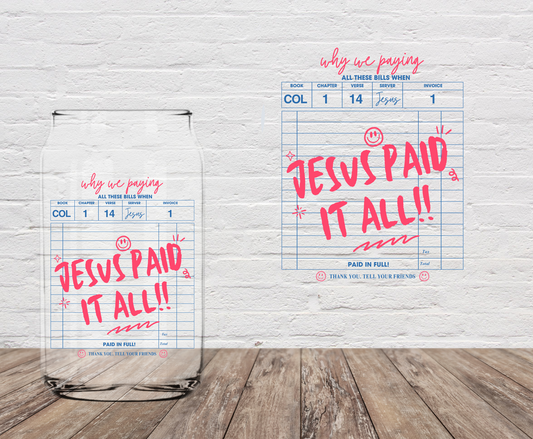 why we paying
ALL THESE BILLS WHEN
BOOK CHAPTER VERSE SERVER INVOICE
COL 1 14 Jesus 1
JESUS PAID
IT ALL!!
Tax
PAID IN FULL! Total
THANK YOU, TELL YOUR FRIENDS
why we paying
ALL THESE BILLS WHEN
BOOK CHAPTER VERSE SERVER INVOICE
COL 1 14 Jesus 1
JESUS PAID
IT ALL!!
Tax
PAID IN FULL! Total
THANK YOU, TELL YOUR FRIENDS